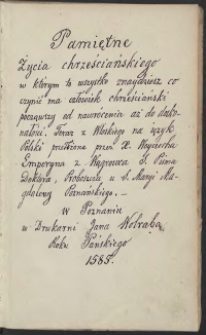 Pamiętne
Życia chrześciańskiego
w którym to wszystko znaydziesz co
czynić ma człowiek chrześciański
począwszy od nawrócenia aż do dosko-
nałości. Teraz z Włoskiego na język
Polski przełożone przez X. Woyciecha
Emporyna z Wągrowca S. Pisma
Doktora, Proboszcza u S. Maryi Ma-
gdaleny Poznańskiego. —
W Poznaniu
w Drukarni Jana Wolraba
Roku Pańskiego
1585.